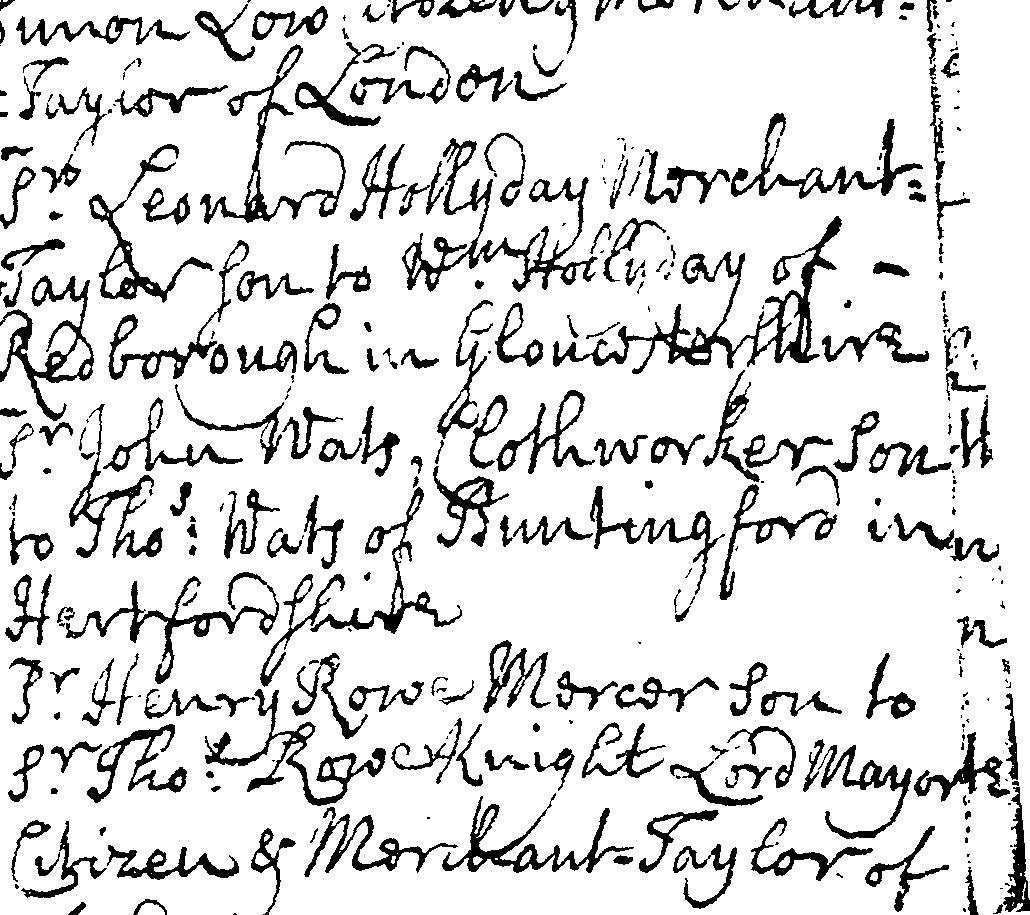 Simon Low Citizen & Merchant=
=Taylor of London
Sr. Leonard Hollyday Merchant=
Taylor son to Wm. Hollyday of -
Redborough in Gloucestershire
Sr. John Wats, Clothworker son
to Thos: Wats of Buntingford in
Hertfordshire
Sr. Henry Rowe Mercer son to
Sr. Tho: Rowe Knight Lord Mayor
Citizen & Merchant=Taylor of